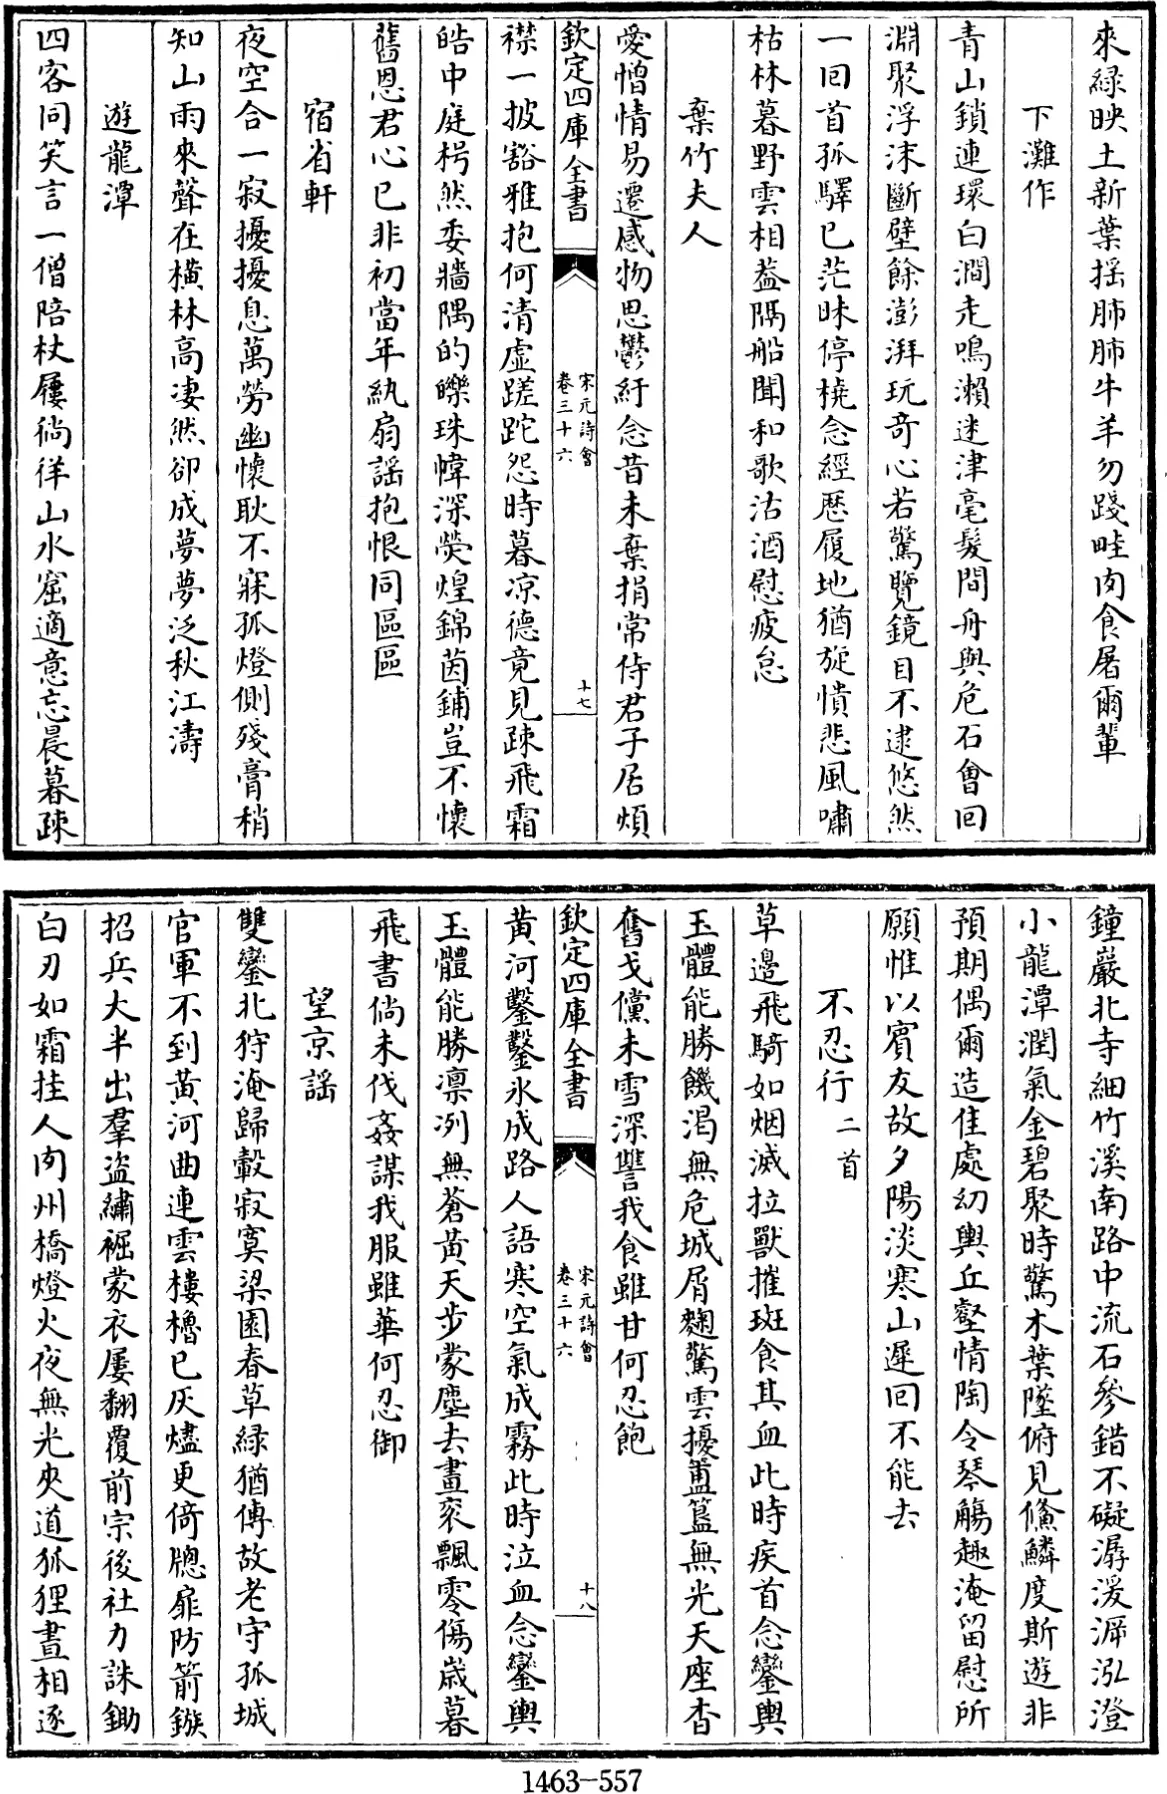 來緑映土新葉揺肺肺牛羊勿踐畦肉食屠爾輩
下灘作
青山鎖連環白澗走鳴瀨迷津毫髮間舟與危石會回
淵聚浮沫斷壁餘澎湃玩奇心若驚覽鏡目不逮悠然
一回首孤驛已茫昧停橈念經歴履地猶旋憒悲風嘯
枯林暮野雲相葢隔船聞和歌沽酒慰疲怠
棄竹夫人
愛憎情易遷感物思鬱紆念昔未棄捐常侍君子居煩
欽定四庫全書
宋元詩會
卷三十六
十七
襟一披豁雅抱何清虚蹉跎怨時暮凉德竟見疎飛霜
皓中庭枵然委牆隅的皪珠幃深熒煌錦茵鋪豈不懷
舊恩君心已非初當年紈扇謡抱恨同區區
宿省軒
夜空合一寂擾擾息萬勞幽懷耿不寐孤燈側殘膏稍
知山雨來聲在横林高凄然卻成夢夢泛秋江濤
遊龍潭
四客同笑言一僧陪杖屨徜徉山水窟適意忘晨暮疎
鐘巖北寺細竹溪南路中流石參錯不礙潺湲㴑泓澄
小龍潭潤氣金碧聚時驚木葉墜俯見鯈鱗度斯遊非
預期偶爾造佳處幼輿丘壑情陶令琴觴趣淹留慰所
願惟以賓友故夕陽淡寒山遲回不能去
不忍行二首
草邉飛騎如烟滅拉獸摧斑食其血此時疾首念鑾輿
玉體能勝饑渴無危城屑麴驚雲擾簠簋無光天座杳
奮戈儻未雪深讐我食雖甘何忍飽
欽定四庫全書
宋元詩會
卷三十六
十八
黄河鑿鑿氷成路人語寒空氣成霧此時泣血念鑾輿
玉體能勝凛冽無蒼黄天步蒙塵去畫衮飄零傷歳暮
飛書倘未伐姦謀我服雖華何忍御
望京謡
雙鑾北狩淹歸轂寂寞梁園春草緑猶傳故老守孤城
官軍不到黄河曲連雲樓櫓已灰燼更倚牕扉防箭鏃
招兵大半出羣盗繡裾蒙衣屢翻覆前宗後社力誅鋤
白刃如霜挂人肉州橋燈火夜無光夾道狐狸晝相逐
1463-557